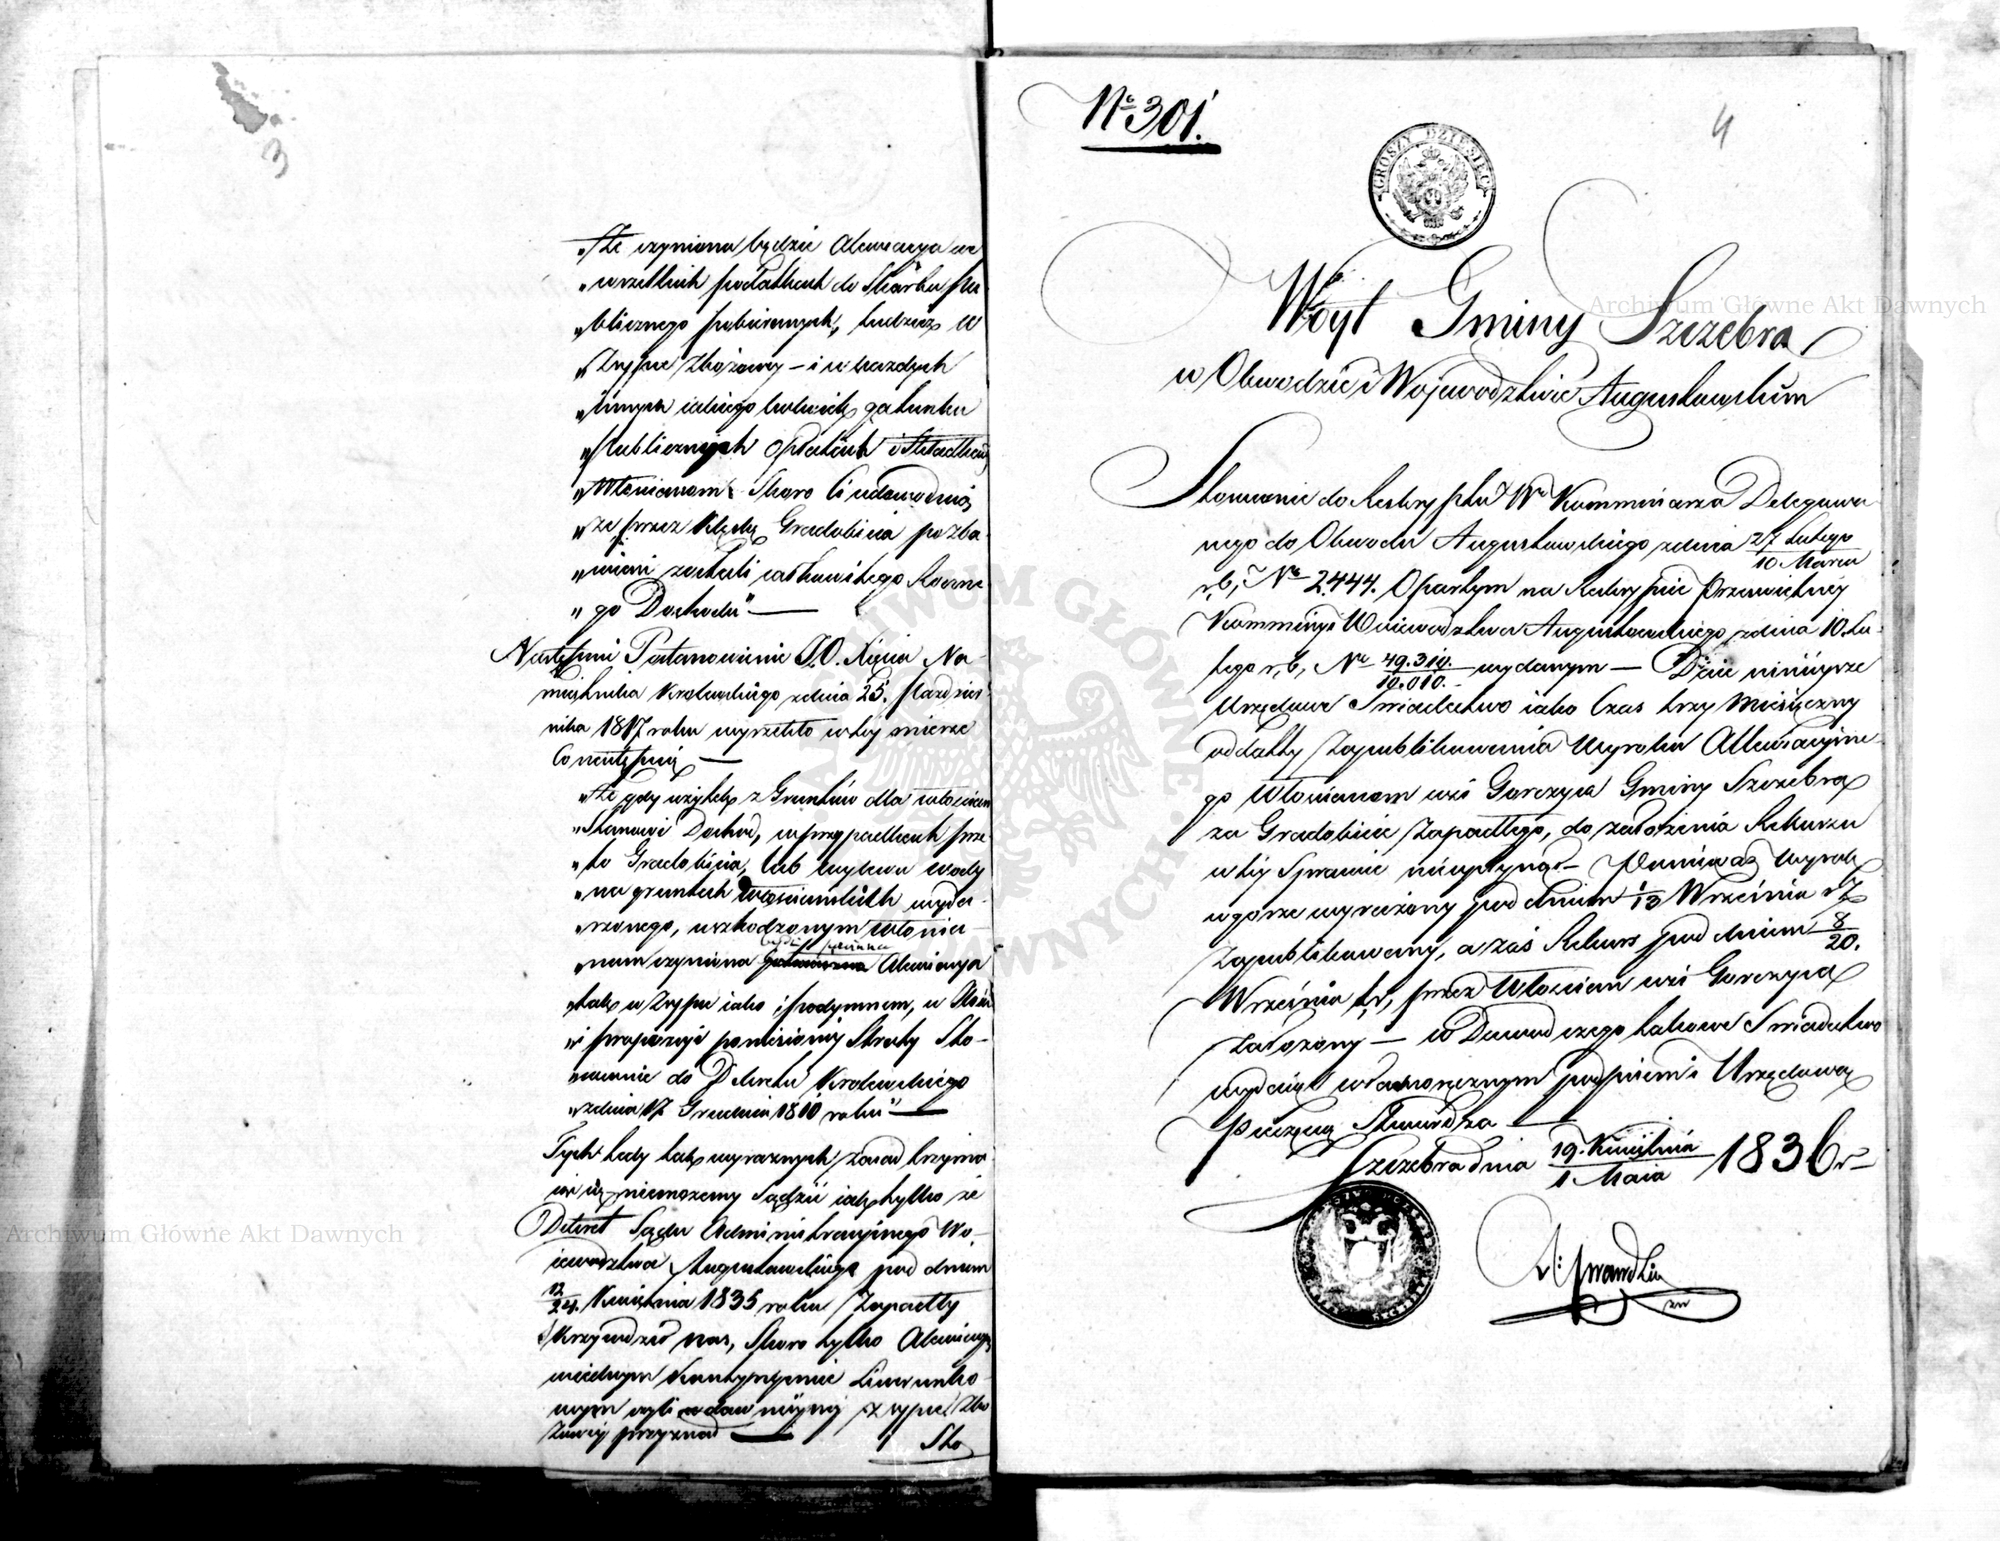 3
„Że czyniona będzie Alewiacya we
„wszelkich podatkach do Skarbu pu-
„blicznego pobieranych, tudzież w
„Zsypie Zbożowy – i w każdych
„innych iakiego kolwiek gatunku
„publicznych opłatach i Składkach
„Włościanom Skoro Ci udowodnią
„że przez Klęskę Gradobicia pozba-
„wieni zostali całkowitego Roczne-
„go Dochodu" —
Następnie Postanowienie J.O. Xięcia Na-
miestnika Krolewskiego z dnia 25. Paździer-
nika 1817 roku wyrzekło w tej mierze
Co następuie —
„Że gdy użytek z Gruntów dla włościan
„Stanowi Dochod, w przypadkach prze-
„to Gradobicia, lub wylewu wody
„na gruntach Włościańskich wyda-
„rzonego, uszkodzonym włościa-
będzie powinna
„nom czyniona Alewiacya
„tak w Zsypie iako i podymnem, w Stosun-
„w proporcyi poniesioney Straty Sto-
„sownie do Dekretu Krolewskiego
„z dnia 17. Grudnia 1810 roku" —
Tych tedy tak wyraznych zasad trzyma-
iąc się niemożemy Sądzić iak tylko że
Dekret Sądu Administracyinego Wo-
iewodztwa Augustowskiego pod dniem
12/24. Kwietnia 1835 roku Zapadły
Skrzywdził nas, Skoro tylko Alewiacyą
w iednym Kontyngensie Liwerunko-
wym czyli w dawnieyszej Zsypce Zbo-
żowey przyznał —
Sto
4
No 301.
GROSZY DZIESIĘĆ
Woyt Gminy Szczebra
w Obwodzie i Wojewodztwie Augustowskim
Stosownie do Reskryptu Wo Kommissarza Delegowa-
nego do Obwodu Augustowskiego z dnia 27 Lutego / 10 Marca
r.b. No 2444. Opartym na Reskrypcie Prześwietney
Kommissyi Woiewodztwa Augustowskiego z dnia 10. Lu-
tego r.b. No 49.310. / 10.010. wydanym — Daie ninieysze
Urzędowe Swiadectwo iako Czas trzy Miesięczny
od daty Zapublikowania Wyroku Alewiacyine-
go Włościanom wsi Garczyca Gminy Szczebra
za Gradobicie Zapadłego, do założenia Rekursu
w tey Sprawie nieupłynął – Ponieważ Wyrok
w gorze wyrażony pod dniem 1/13 Września r.z.
Zapublikowany, a zaś Rekurs pod dniem 8/20.
Września t.r. przez Włościan wsi Garczyca
założony — w Dowod czego takowe Swiadectwo
wydaiąc własnoręcznym podpisem i Urzędową
pieczęcią Stwierdza —
Szczebra dnia 19. Kwietnia / 1 Maia 1836 r
Archiwum Główne Akt Dawnych
Archiwum Główne Akt Dawnych
ARCHIWUM GŁÓWNE AKT DAWNYCH